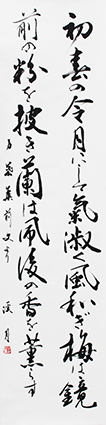 初春の令月にして氣淑く風和ぎ梅は鏡
前の粉を披き蘭は珮後の香を薫らす
万葉集